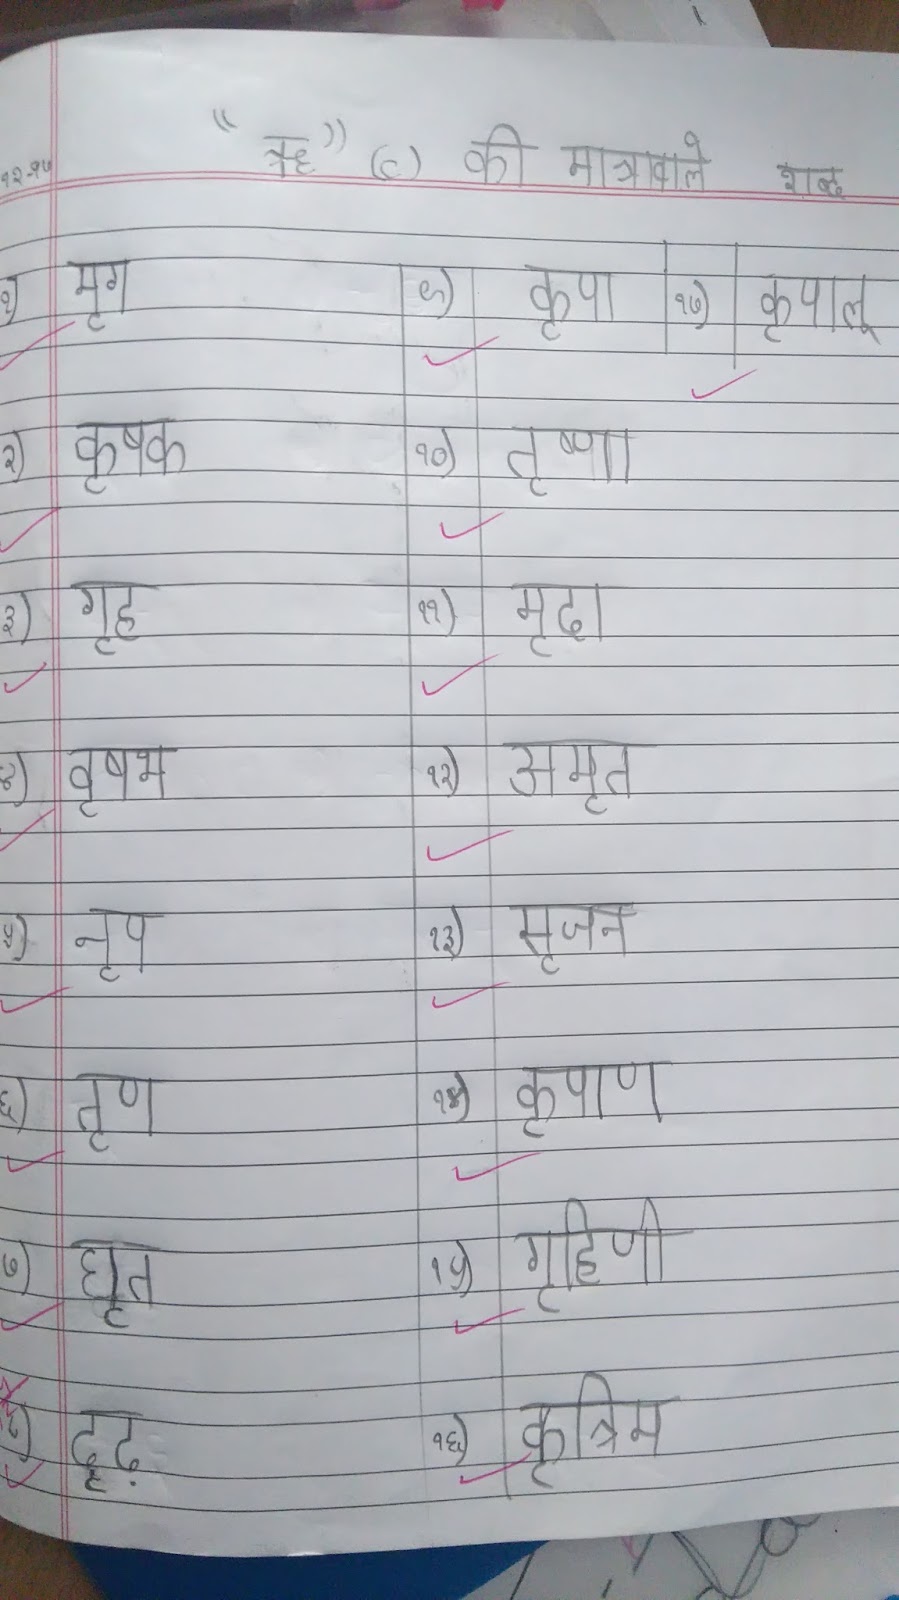 "ऋ" (ृ) की मात्रावाले शब्द
१२-१७
१) मृग
९) कृपा
१७) कृपालू
२) कृषक
१०) तृष्णा
३) गृह
११) मृदा
४) वृषभ
१२) अमृत
५) नृप
१३) सृजन
६) तृण
१४) कृपाण
७) घृत
१५) गृहिणी
दृढ़
१६) कृत्रिम